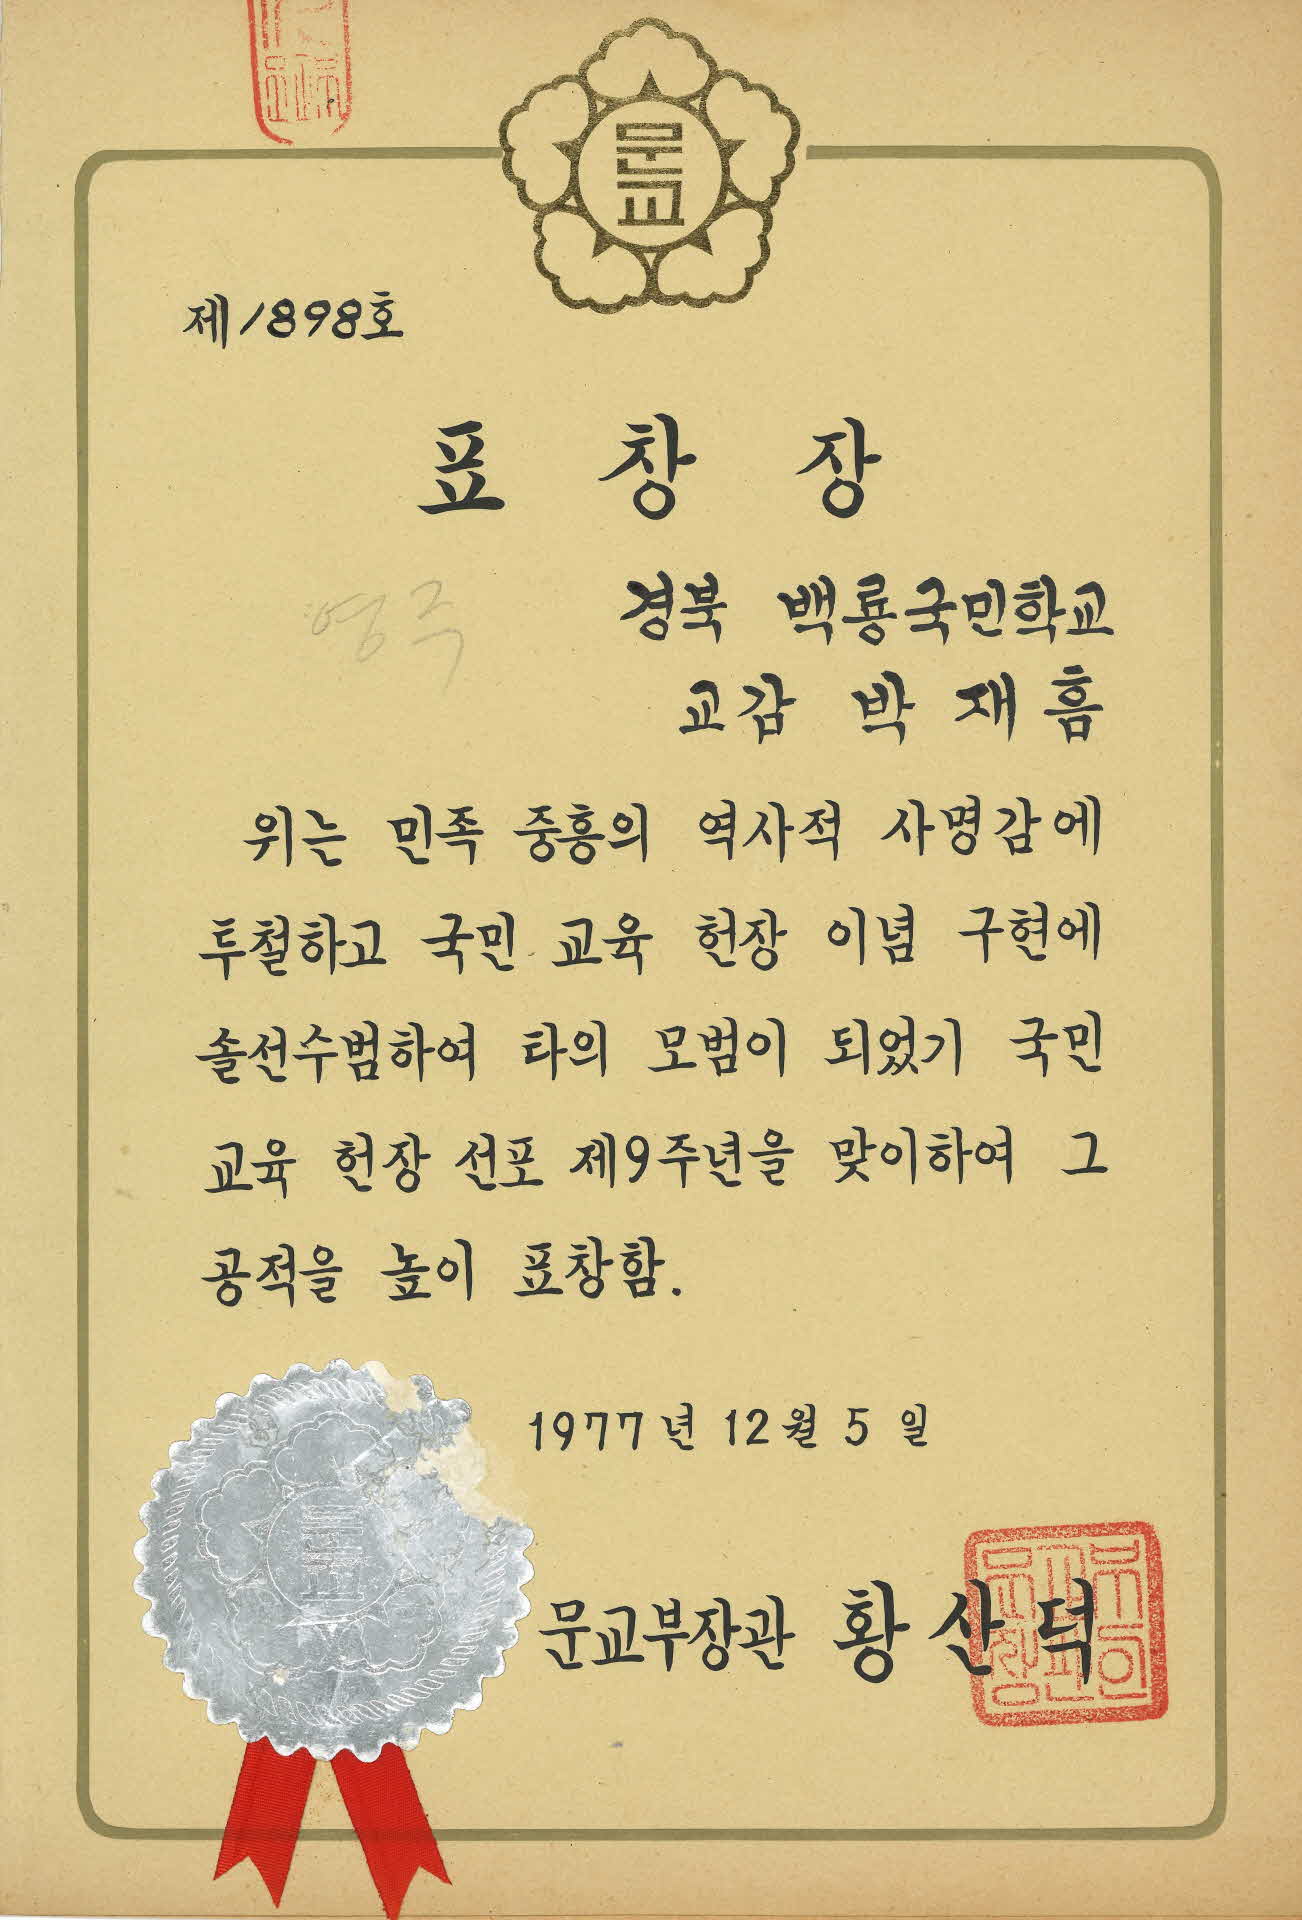 문교
제1898호
표창장
영주
경북 백룡국민학교
교감 박재흠
위는 민족 중흥의 역사적 사명감에
투철하고 국민 교육 헌장 이념 구현에
솔선수범하여 타의 모범이 되었기 국민
교육 헌장 선포 제9주년을 맞이하여 그
공적을 높이 표창함.
1977년 12월 5일
문교부장관 황산덕
문교부장관인